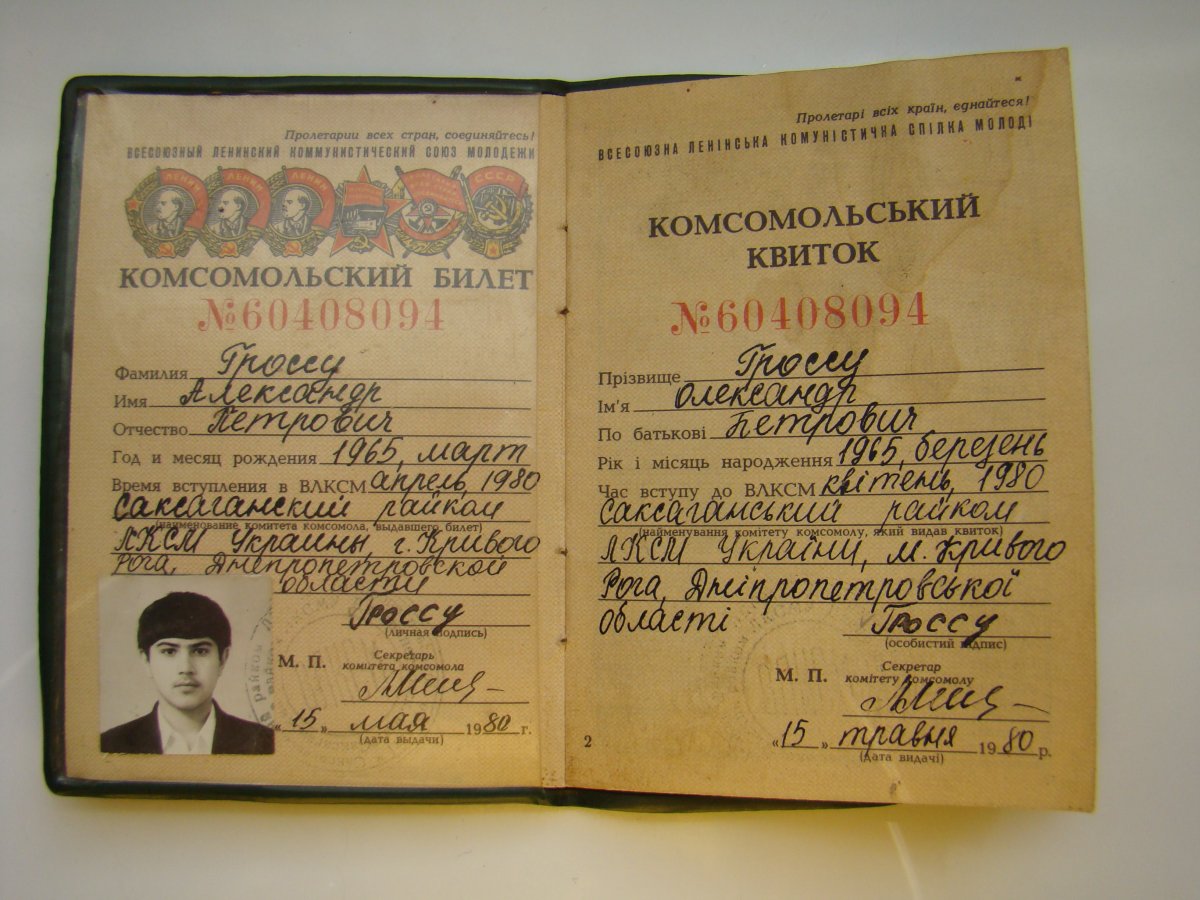 Пролетарии всех стран, соединяйтесь!
ВСЕСОЮЗНЫЙ ЛЕНИНСКИЙ КОММУНИСТИЧЕСКИЙ СОЮЗ МОЛОДЕЖИ
ЛЕНИН ЛЕНИН ЛЕНИН СССР
КОМСОМОЛЬСКИЙ БИЛЕТ
№60408094
Фамилия Гроссу
Имя Александр
Отчество Петрович
Год и месяц рождения 1965, март
Время вступления в ВЛКСМ апрель, 1980
Саксаганский райком
(наименование комитета комсомола, выдавшего билет)
ЛКСМ Украины, г. Кривого
Рога, Днепропетровской
области
Гроссу
(личная подпись)
М. П. Секретарь
комитета комсомола
„15„ мая 1980 г.
(дата выдачи)
Пролетарі всіх країн, єднайтеся!
ВСЕСОЮЗНА ЛЕНІНСЬКА КОМУНІСТИЧНА СПІЛКА МОЛОДІ
КОМСОМОЛЬСЬКИЙ
КВИТОК
№60408094
Прізвище Гроссу
Ім'я Олександр
По батькові Петрович
Рік і місяць народження 1965, березень
Час вступу до ВЛКСМ квітень, 1980
Саксаганський райком
(найменування комітету комсомолу, який видав квиток)
ЛКСМ України, м. Кривого
Рога, Дніпропетровської
області
Гроссу
(особистий підпис)
М. П. Секретар
комітету комсомолу
„15„ травня 1980 р.
(дата видачі)
2